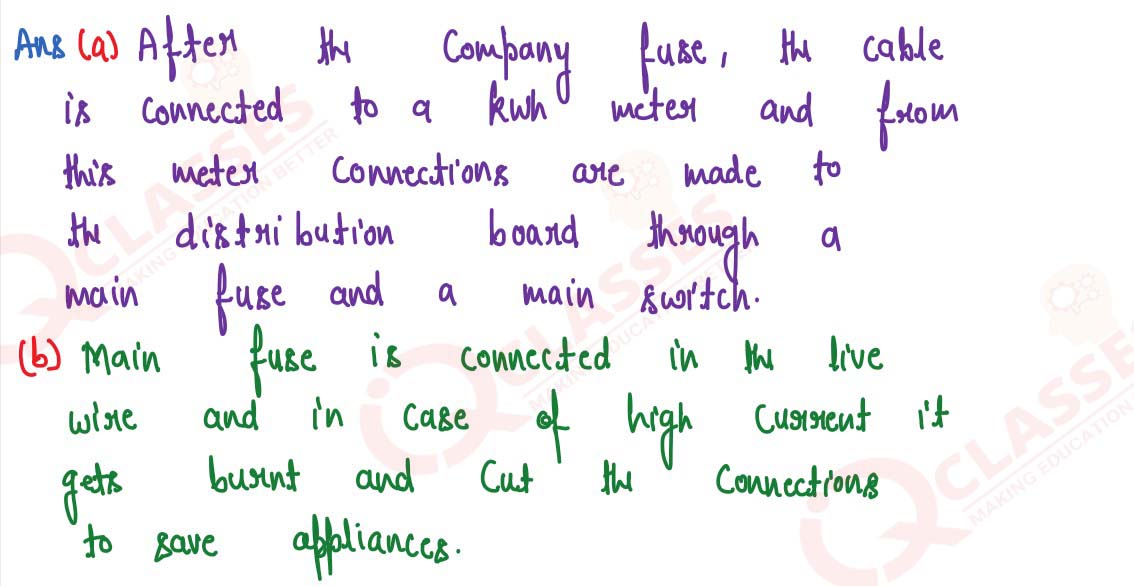 Ans (a) After the Company fuse, the cable
is connected to a kwh meter and from
this meter connections are made to
the distribution board through a
main fuse and a main switch.
(b) Main fuse is connected in the live
wire and in case of high current it
gets burnt and cut the connections
to save appliances.
CLASSES
MAKING EDUCATION BETTER
CLASSES
MAKING EDUCATION
CLASSES
MAKING EDUCATION